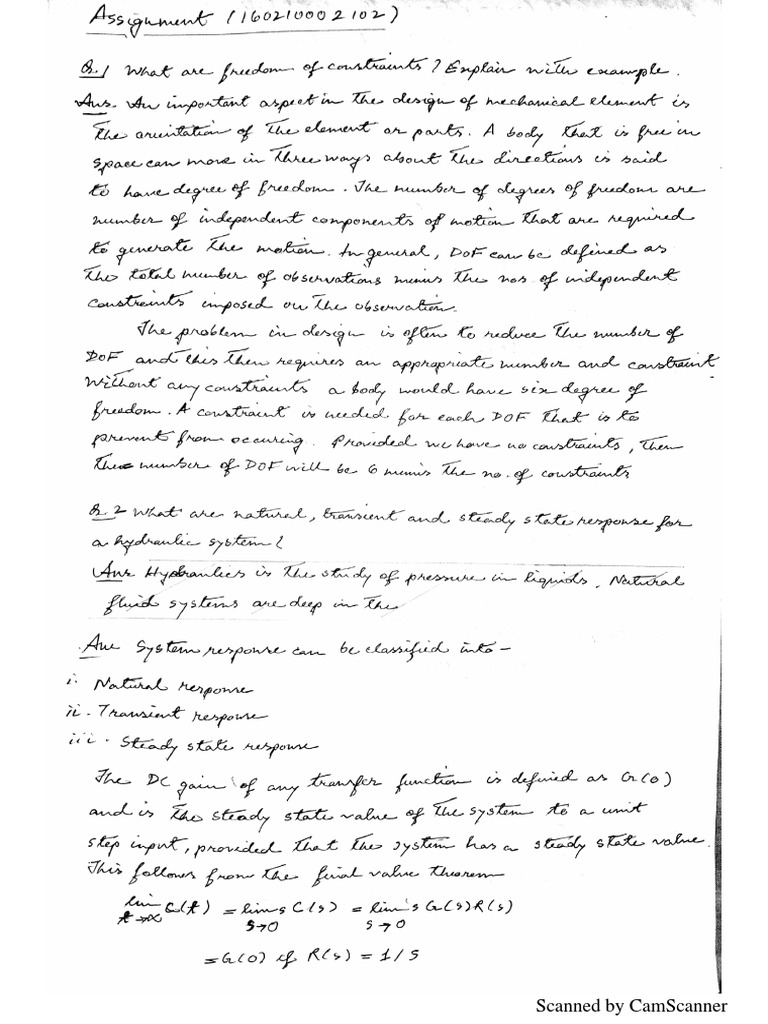 Assignment (160210002102)
Q.1 What are freedom of constraints? Explain with example.
Ans. An important aspect in the design of mechanical element is
the orientation of the element or parts. A body that is free in
space can move in three ways about the directions is said
to have degree of freedom. The number of degrees of freedom are
number of independent components of motion that are required
to generate the motion. In general, DOF can be defined as
the total number of observations minus the nos. of independent
constraints imposed on the observation.
The problem in design is often to reduce the number of
DOF and this then requires an appropriate number and constraint
Without any constraints a body would have six degree of
freedom. A constraint is needed for each DOF that is to
prevent from occuring. Provided we have no constraints, then
the number of DOF will be 6 minus the no. of constraints
Q.2 What are natural, transient and steady state response for
a hydraulic system?
Ans Hydraulics is the study of pressure in liquids. Natural
fluid systems are deep in the
Ans System response can be classified into -
i. Natural response
ii. Transient response
iii. Steady state response
The DC gain of any transfer function is defined as G(0)
and is the steady state value of the system to a unit
step input, provided that the system has a steady state value.
This follows from the final value theorem
lim C(t) = lim s C(s) = lim s G(s) R(s)
t→∞ s→0 s→0
= G(0) if R(s) = 1/s
Scanned by CamScanner